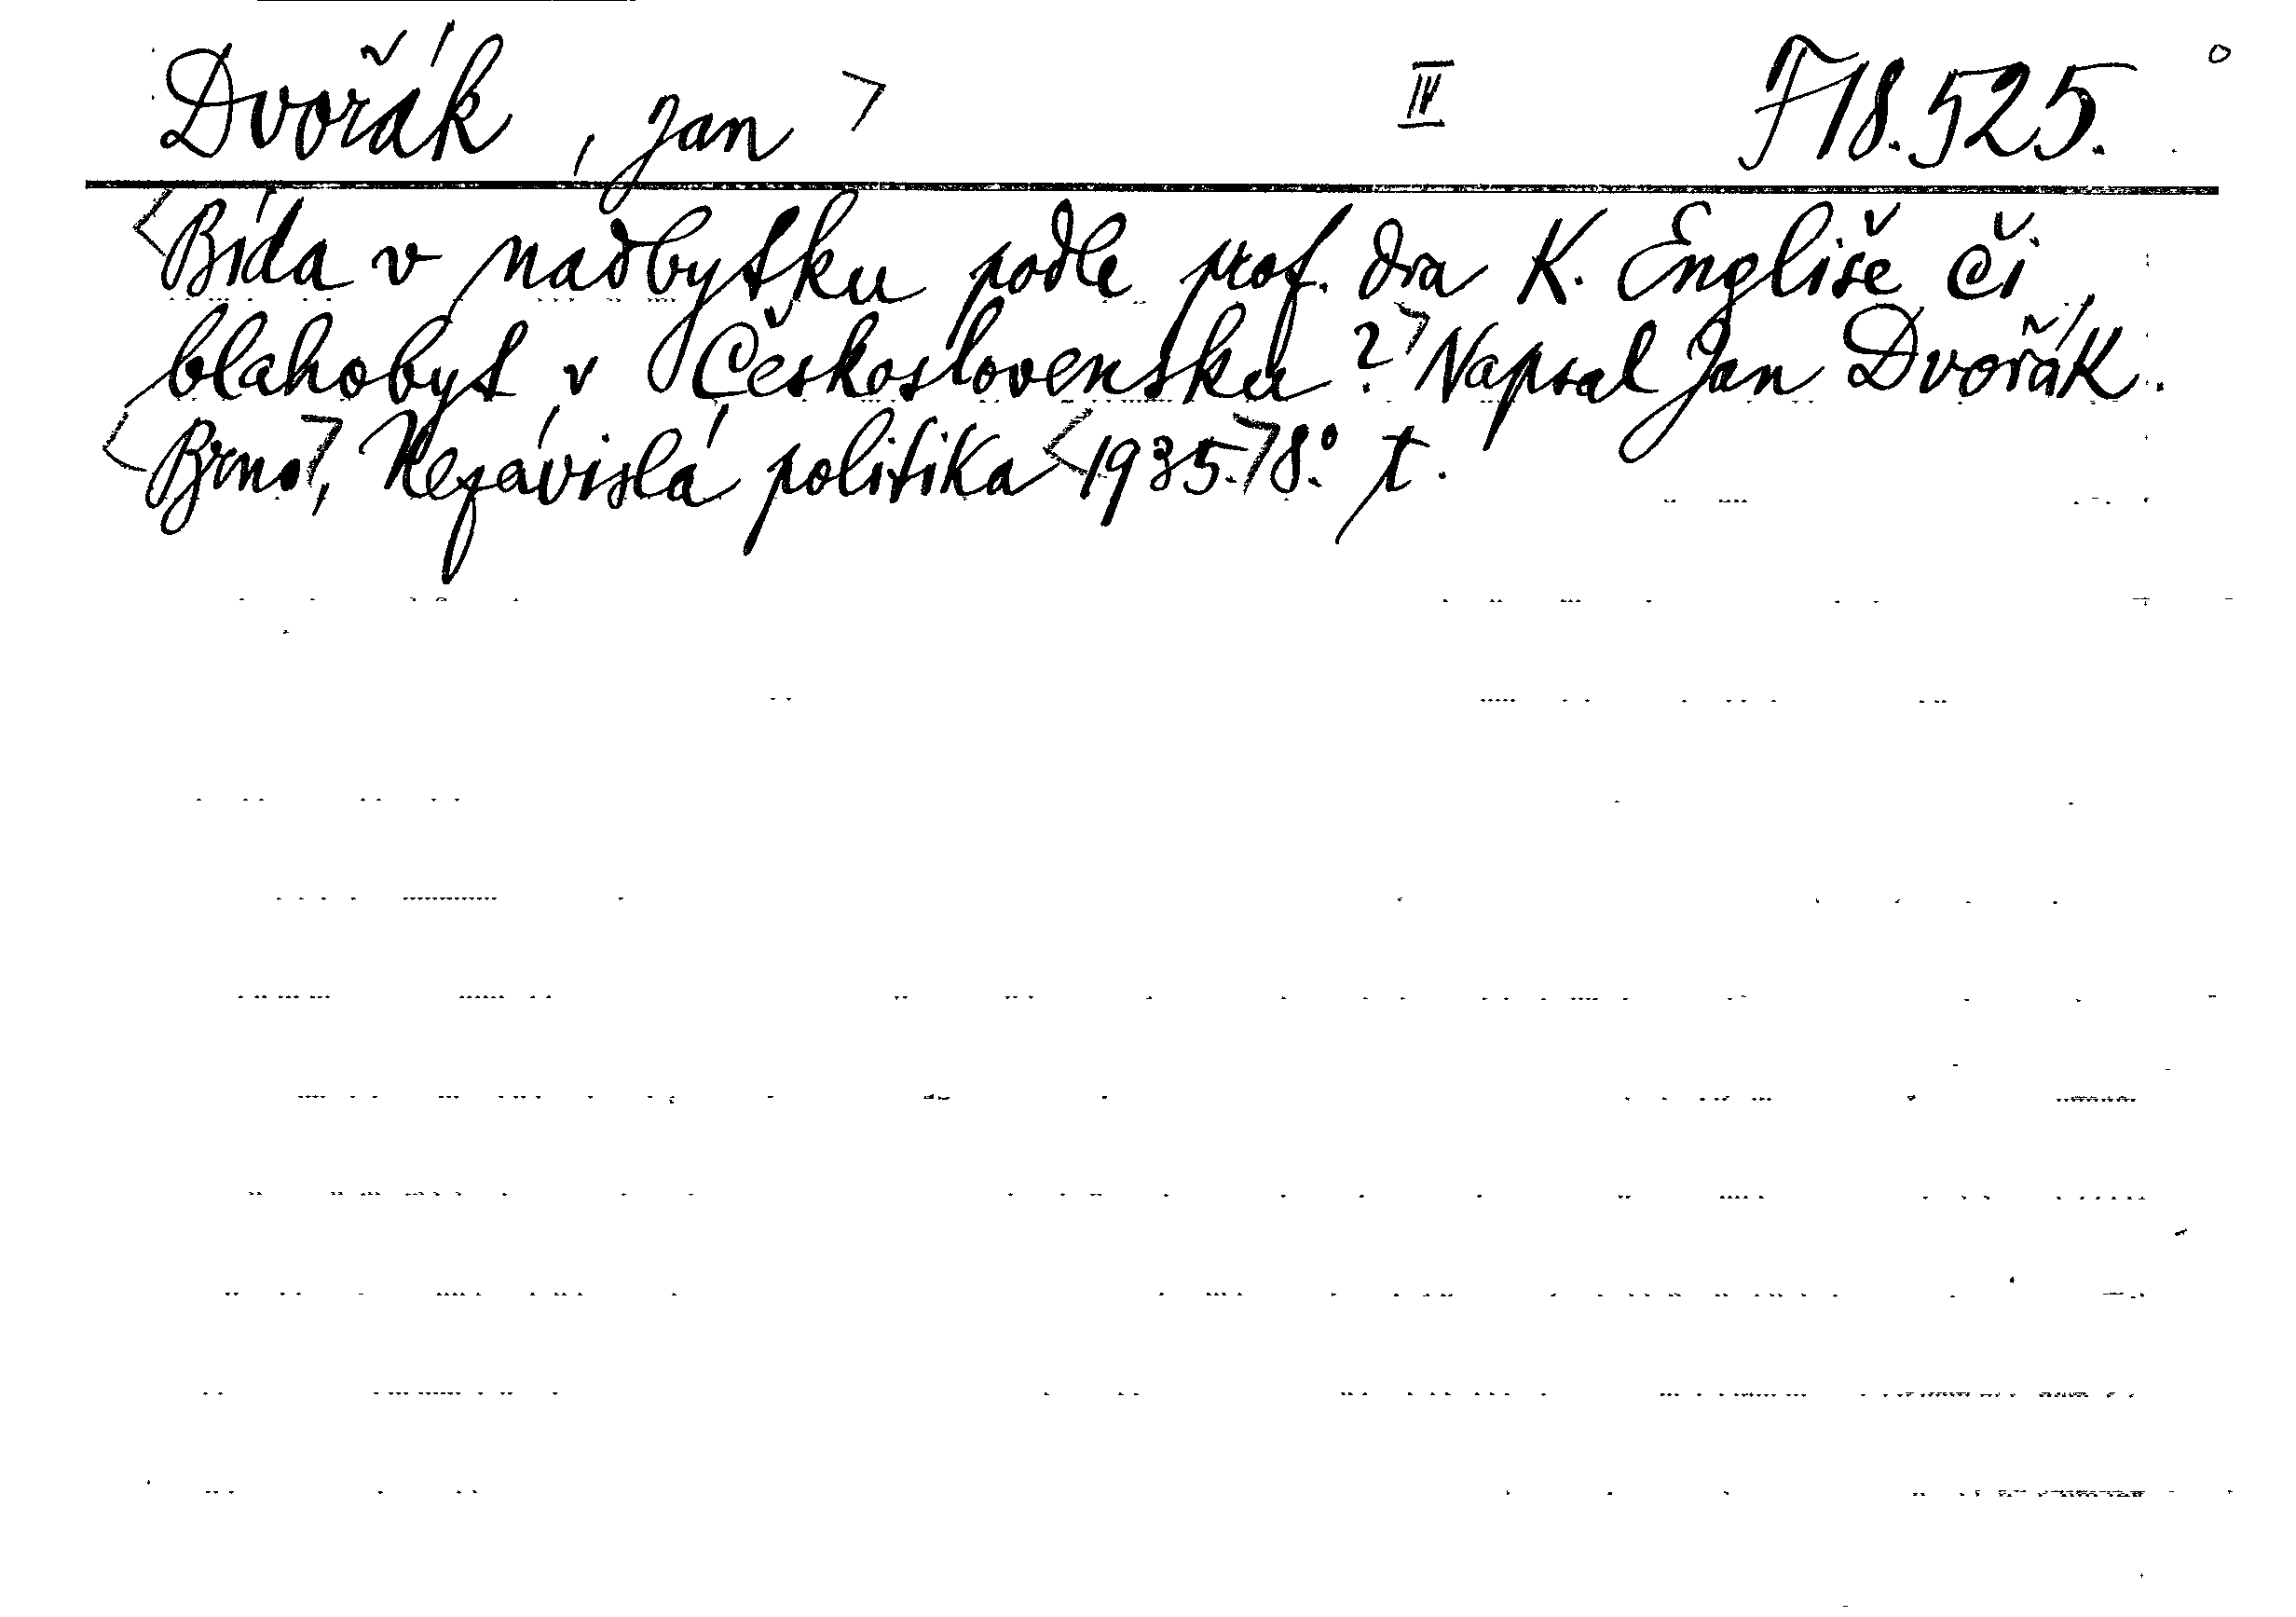 Dvořák, Jan> IV F 18.525.
<Bída v nadbytku podle prof. dra K. Engliše či
blahobyt v Československu?> Napsal Jan Dvořák.
<Brno>, Nezávislá politika <1935.> 8.° t.